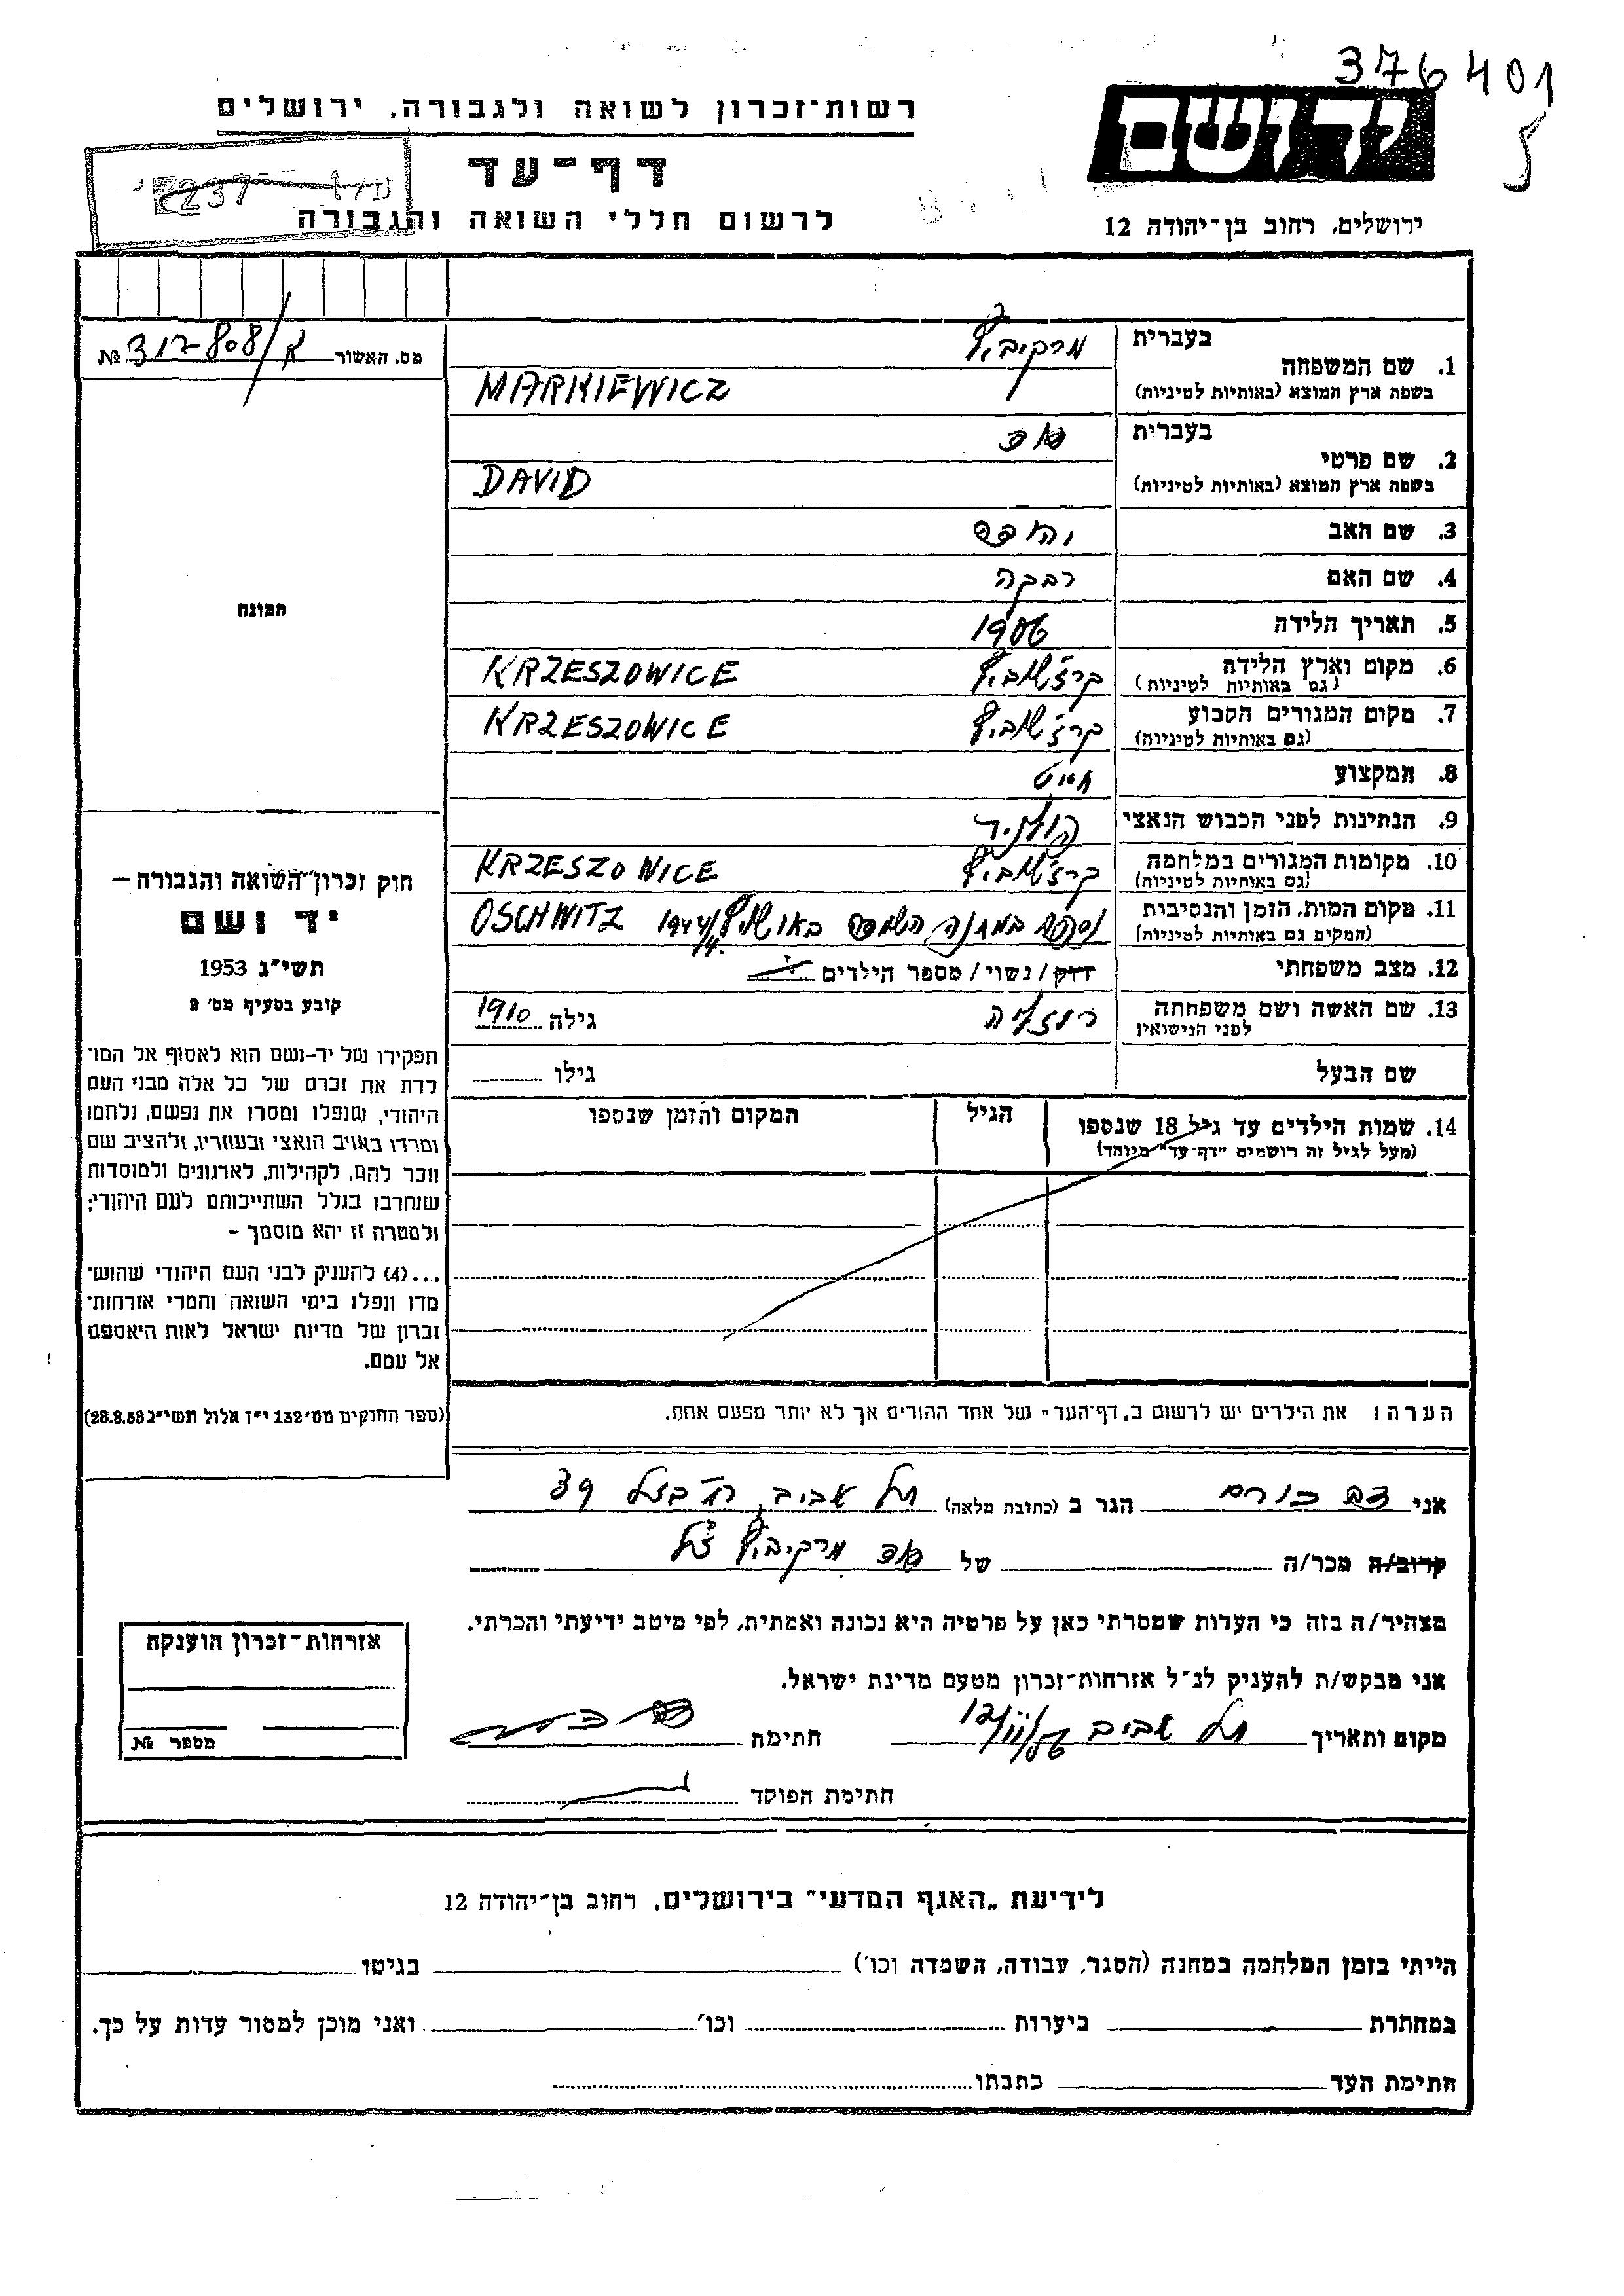 376401
רשות־זכרון לשואה ולגבורה, ירושלים
יד ושם
דף־עד
לרשום חללי השואה והגבורה
ירושלים, רחוב בן־יהודה 12
מס. האשור 312808/א №
1. שם המשפחה
בעברית
מרקיביץ
בשפת ארץ המוצא (באותיות לטיניות)
MARKIEWICZ
2. שם פרטי
בעברית
דוד
בשפת ארץ המוצא (באותיות לטיניות)
DAVID
3. שם האב
4. שם האם
רבקה
5. תאריך הלידה
1906
6. מקום וארץ הלידה
(גם באותיות לטיניות)
קרז'שוביץ KRZESZOWICE
7. מקום המגורים הקבוע
(גם באותיות לטיניות)
קרז'שוביץ KRZESZOWICE
8. המקצוע
חייט
9. הנתינות לפני הכבוש הנאצי
פולנית
10. מקומות המגורים במלחמה
(גם באותיות לטיניות)
קרז'שוביץ KRZESZOWICE
11. מקום המות, הזמן והנסיבות
(המקום גם באותיות לטיניות)
נספה במחנה השמדה באושויץ 1944 OSCHWITZ
12. מצב משפחתי
רווק / נשוי / מספר הילדים
13. שם האשה ושם משפחתה
לפני הנישואין
רוזליה
גילה 1910
שם הבעל
גילו
14. שמות הילדים עד גיל 18 שנספו
(מעל לגיל זה רושמים "דף־עד" מיוחד)
הגיל
המקום והזמן שנספו
הערה: את הילדים יש לרשום ב„דף־העד" של אחד ההורים אך לא יותר מפעם אחת.
תמונה
חוק זכרון השואה והגבורה —
יד ושם
תשי"ג 1953
קובע בסעיף מס' 2
תפקידו של יד-ושם הוא לאסוף אל המו־
לדת את זכרם של כל אלה מבני העם
היהודי, שנפלו ומסרו את נפשם, נלחמו
ומרדו באויב הנאצי ובעוזריו, ולהציב שם
וזכר להם, לקהילות, לארגונים ולמוסדות
שנחרבו בגלל השתייכותם לעם היהודי;
ולמטרה זו יהא מוסמך –
...(4) להעניק לבני העם היהודי שהוש־
מדו ונפלו בימי השואה והמרי אזרחות־
זכרון של מדינת ישראל לאות היאספם
אל עמם.
(ספר החוקים מס' 132 י"ז אלול תשי"ג 28.8.53)
אני הגר ב (כתובת מלאה) תל אביב, 39
קרוב/ה מכר/ה של דוד מרקיביץ ז"ל
מצהיר/ה בזה כי העדות שמסרתי כאן על פרטיה היא נכונה ואמתית, לפי מיטב ידיעתי והכרתי.
אני מבקש/ת להעניק לנ"ל אזרחות־זכרון מטעם מדינת ישראל.
מקום ותאריך תל אביב חתימה
חתימת הפוקד
אזרחות־זכרון הוענקה
מספר №
לידיעת „האגף המדעי" בירושלים, רחוב בן־יהודה 12
הייתי בזמן המלחמה במחנה (הסגר, עבודה, השמדה וכו') בגיטו
במחתרת ביערות וכו' ואני מוכן למסור עדות על כך.
חתימת העד כתבתו